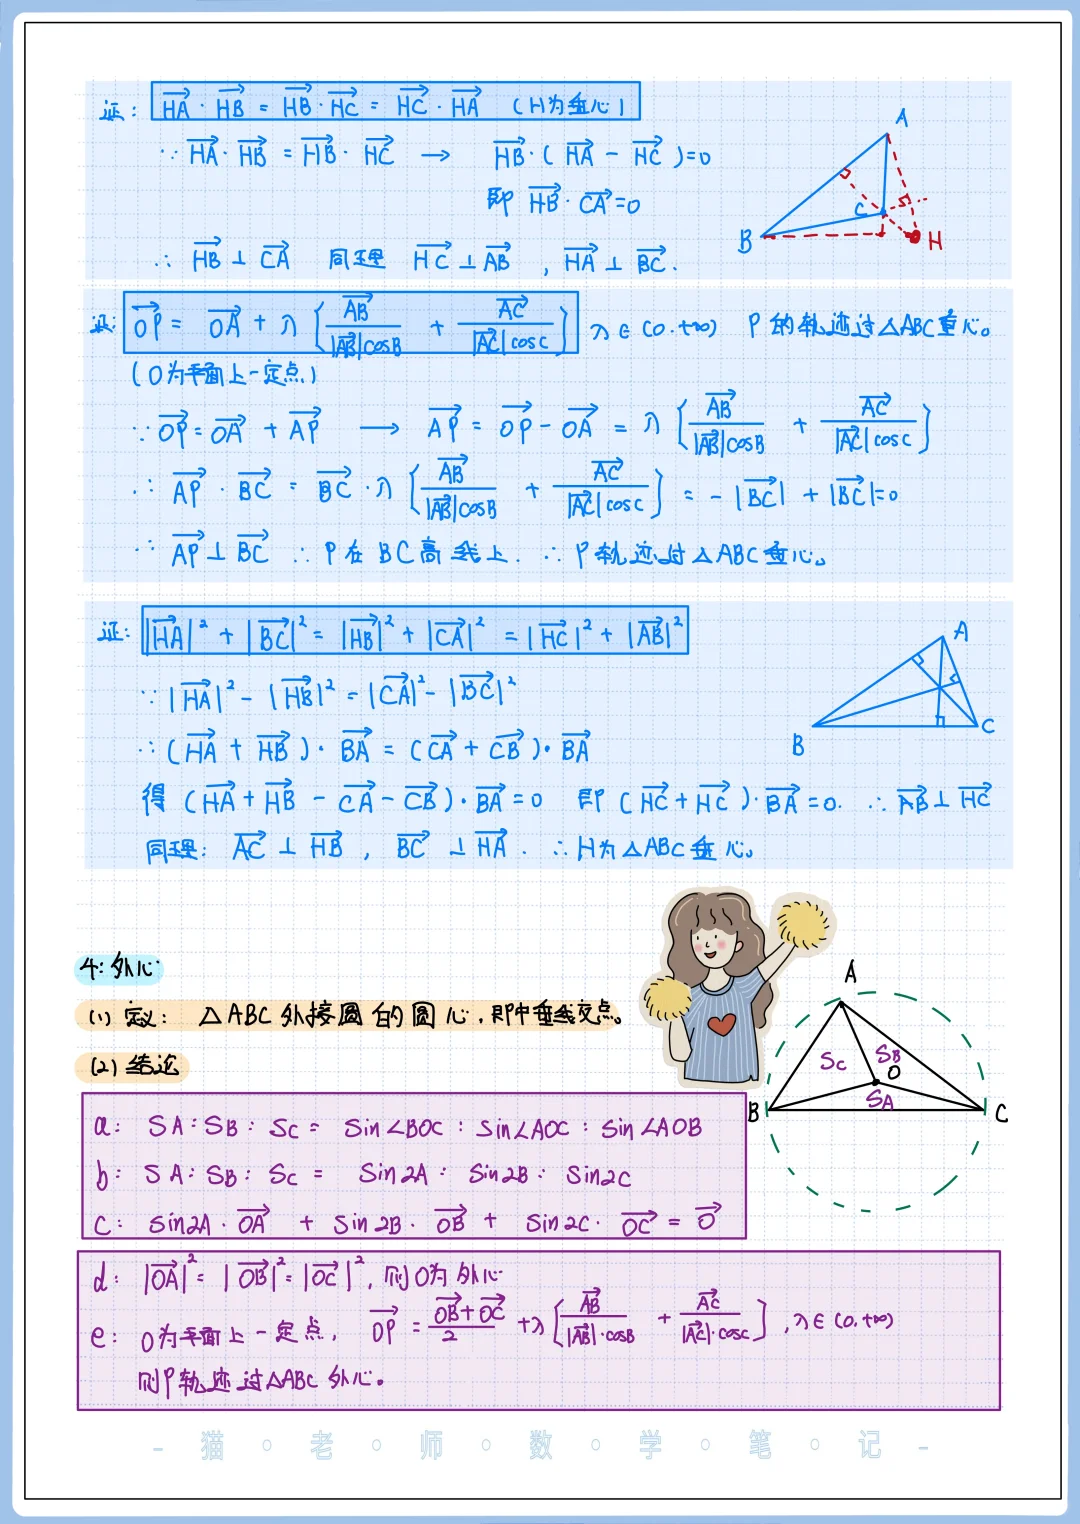 证: |HA→·HB→ = HB→·HC→ = HC→·HA→ (H为垂心)
∵ HA→·HB→ = HB→·HC→ → HB→·(HA→ - HC→)=0
即 HB→·CA→=0
∴ HB→⊥CA→ 同理 HC→⊥AB→, HA→⊥BC→.
A
B
C
H
证: OP→ = OA→ + λ(AB→/|AB→|cosB + AC→/|AC→|cosC) λ∈(0,+∞) P的轨迹过△ABC重心。
(O为平面上一定点)
∵ OP→=OA→+AP→ → AP→ = OP→-OA→ = λ(AB→/|AB→|cosB + AC→/|AC→|cosC)
∴ AP→·BC→ = BC→·λ(AB→/|AB→|cosB + AC→/|AC→|cosC) = -|BC→|+|BC→|=0
∴ AP→⊥BC→ ∴P在BC高线上. ∴P轨迹过△ABC垂心。
证: |HA→|²+|BC→|²=|HB→|²+|CA→|²=|HC→|²+|AB→|²
∵|HA→|²-|HB→|²=|CA→|²-|BC→|²
∴(HA→+HB→)·BA→=(CA→+CB→)·BA→
得(HA→+HB→-CA→-CB→)·BA→=0 即(HC→+HC→)·BA→=0. ∴AB→⊥HC→
同理: AC→⊥HB→, BC→⊥HA→. ∴H为△ABC垂心。
A
B
C
4:外心
(1) 定义: △ABC外接圆的圆心,即中垂线交点。
(2) 结论
A
B
C
O
SC
SB
SA
a: SA:SB:SC = Sin∠BOC:Sin∠AOC:Sin∠AOB
b: SA:SB:SC = Sin2A:Sin2B:Sin2C
C: Sin2A·OA→ + Sin2B·OB→ + Sin2C·OC→ = O→
d: |OA→|²=|OB→|²=|OC→|², 则O为外心
e: O为平面上一定点, OP→ = (OB→+OC→)/2 + λ[AB→/|AB→|·cosB + AC→/|AC→|·cosC], λ∈(0,+∞)
则P轨迹过△ABC外心。
- 猫·老·师·数·学·笔·记 -